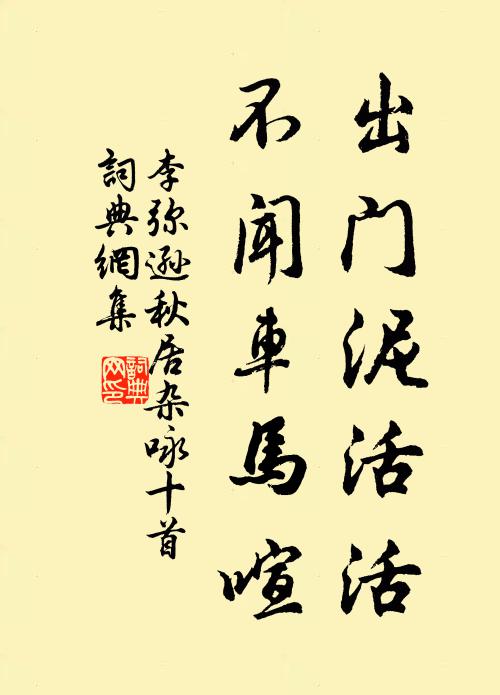 出门泥活活
不闻車馬喧
李弥遜秋居杂咏十首
詞典網集
詞典
网印